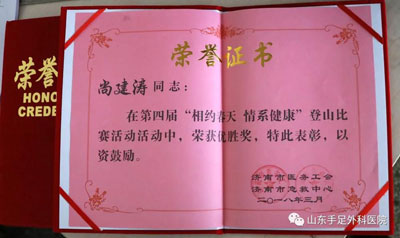 荣誉
HONO
CREDE
荣誉证书
尚建涛同志：
在第四届“相约春天 情系健康”登山比
赛活动活动中，荣获优胜奖，特此表彰，以
资鼓励。
济南市医务工会
济南市急救中心
二〇一八年三月
山东手足外科医院